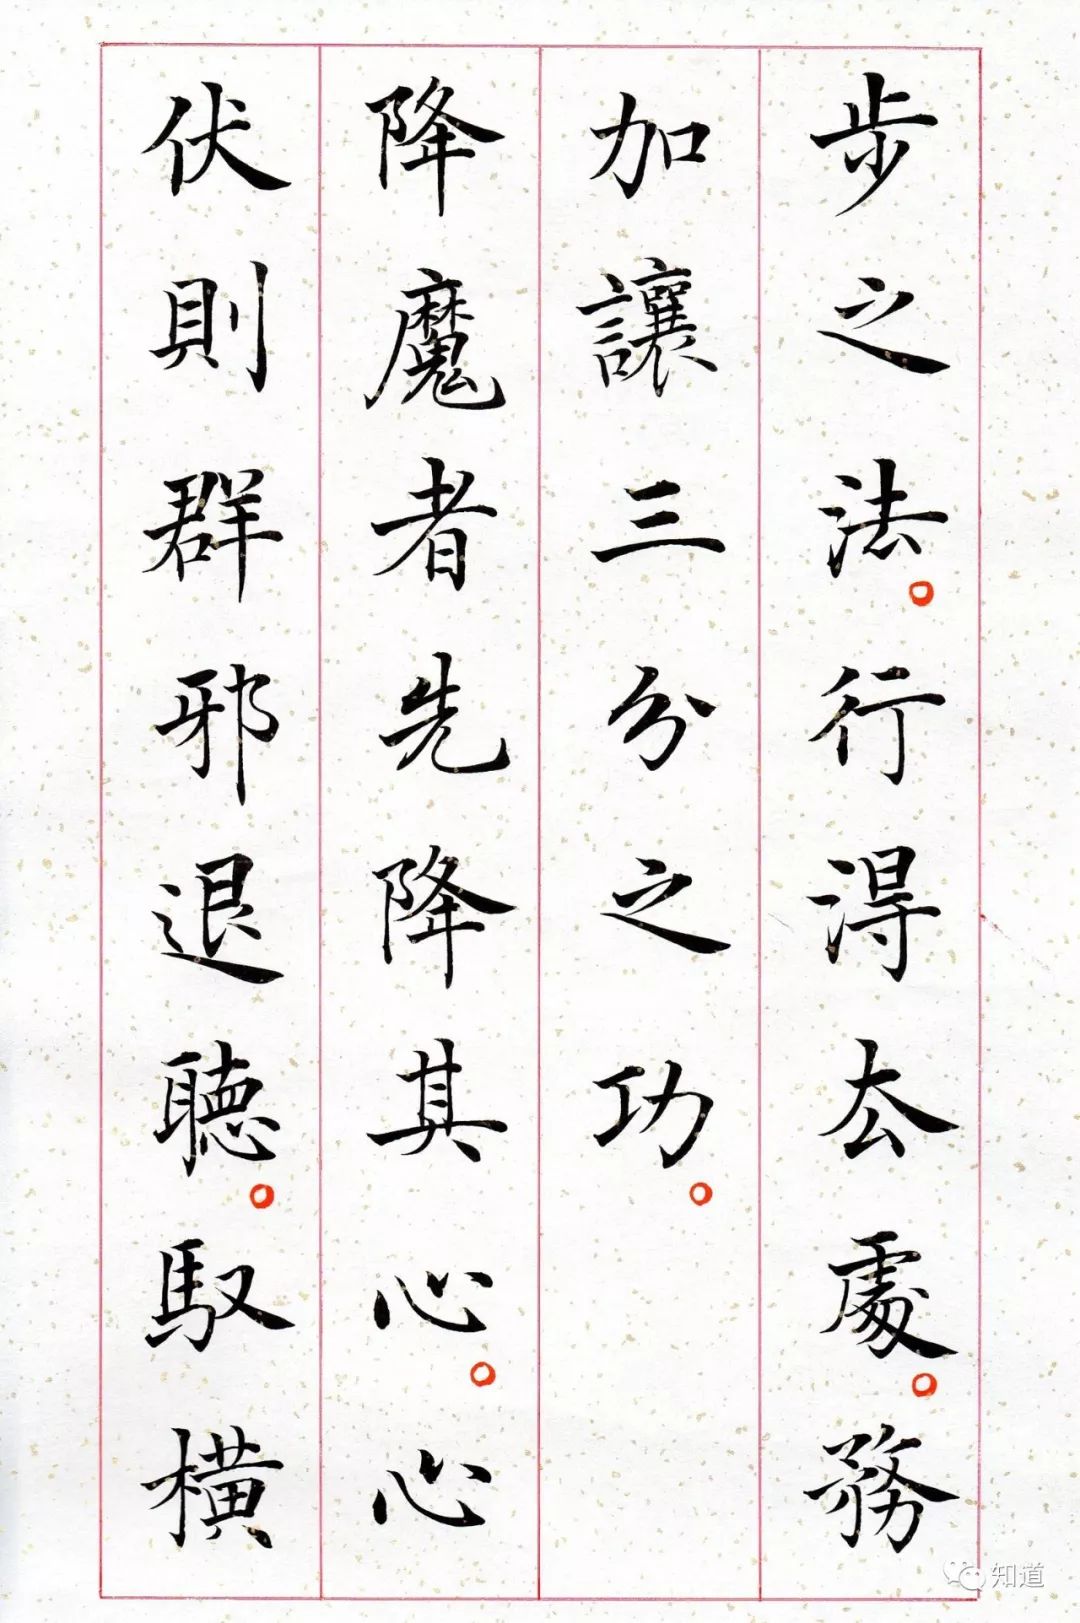 步之法。行得去處。務
加讓三分之功。
降魔者先降其心。心
伏則群邪退聽。馭橫
知道